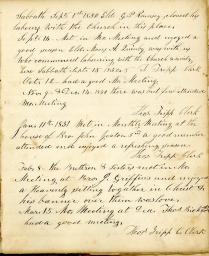 Sabbath Sept 1st 1850 Eld. G. P. Ramsey closed his
labours with the Church in this place.
Sept. 14. Met in Mo. Meeting and enjoyed a
good season Eld. Mary A. was with us
who commenced labouring with the church
Sabbath Sept 15 1850. Tripp Clerk
Oct. 12. had a good Mo. Meeting
Nov 9 & Dec 14. 1850 there was but few attended
Mo. Meeting
Tripp Clerk
Jan. 11th 1851 Met in Monthly Meeting at the
house of Bro. John a good number
attended and enjoyed a refreshing season.
Tripp Clerk
Feb. 8. the Brethren & Sisters met in Mo.
Meeting at Bro. J. Griffins and enjoyed
a Heavenly sitting together in Christ &
his banner over them was love.
Mar. 15 Mo. Meeting at Dea. Thos.
had a good meeting.
Tripp C. Clerk